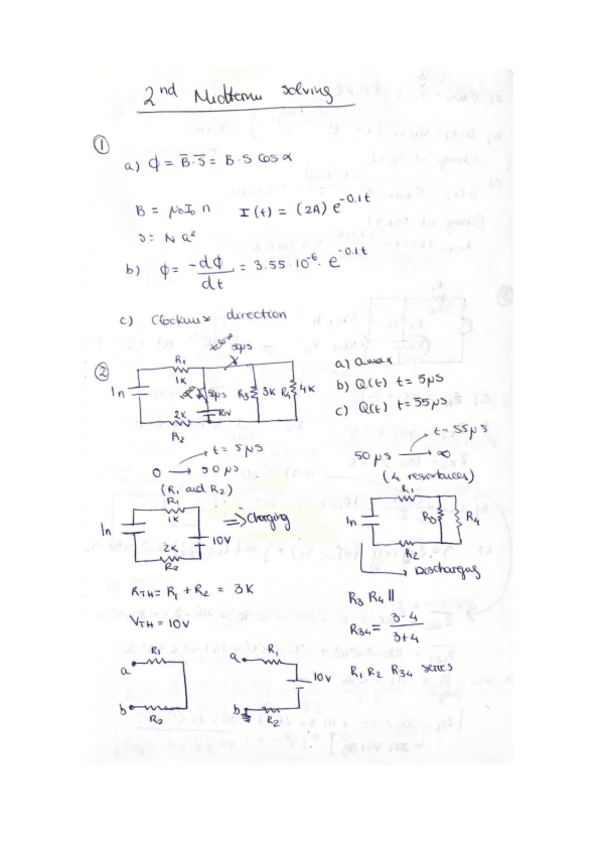 2nd Midterm solving
①
a) ϕ = B̅.S̅ = B.S Cos α
B = μ₀I₀ n I(t) = (2A) e^-0.1t
S = N a²
b) ϕ = -dϕ/dt = 3.55.10^-6. e^-0.1t
c) Clockwise direction
②
R1
1K
1n
50μs
5μs
10V
R3 3K R4 4K
2K
R2
a) Qmax
b) Q(t) t = 5μs
c) Q(t) t = 55μs
t = 5μs
0 → 50μs
(R1 and R2)
R1
1K
1n
10V
2K
R2
⇒ Charging
t = 55μs
50μs → ∞
(4 resistances)
R1
1n
R3
R4
R2
→ Discharging
RTH = R1 + R2 = 3K
VTH = 10V
R3 R4 ||
R34 = 3.4/3+4
R1 R2 R34 series
R1
a
b
R2
R1
a
10V
b
R2